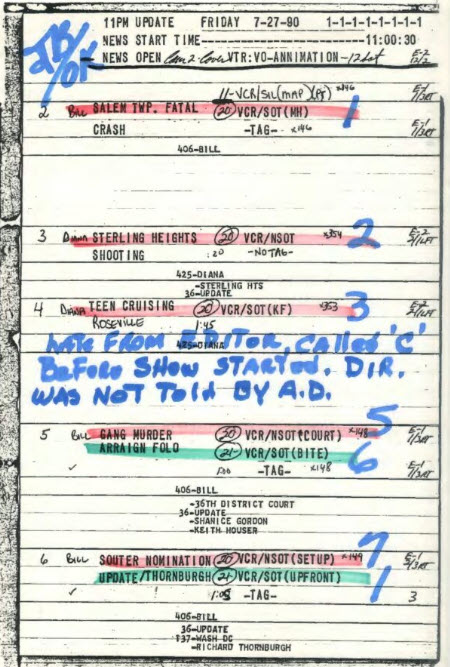 11PM UPDATE FRIDAY 7-27-90 1-1-1-1-1-1-1-1
NEWS START TIME------------------11:00:30
NEWS OPEN Cam 2 Cover VTR:VO-ANNIMATION -12 Let E-2
OK
11-VCR/SIL(MAP)(PF) X146
2 Bill SALEM TWP. FATAL 20 VCR/SOT(MH) 1
CRASH -TAG- X146 E-1
406-BILL
3 Diana STERLING HEIGHTS 20 VCR/NSOT X354 2 E-2
SHOOTING :20 -NOTAG- 2/LFT
425-DIANA
-STERLING HTS
36-UPDATE
4 Diana TEEN CRUISING 20 VCR/SOT(KF) X353 3 E-2
ROSEVILLE 1:45 2/LFT
425-DIANA
LATE FROM EDITOR, CALLED 'C'
BEFORE SHOW STARTED. DIR.
WAS NOT TOLD BY A.D.
5 Bill GANG MURDER 20 VCR/NSOT(COURT) X148 5 E-1
ARRAIGN FOLO 21 VCR/SOT(BITE) 6
✓ 1:00 -TAG- X148
406-BILL
-36TH DISTRICT COURT
36-UPDATE
-SHANICE GORDON
-KEITH HOUSER
6 Bill SOUTER NOMINATION 20 VCR/NSOT(SETUP) X149 7 E-1
UPDATE/THORNBURGH 21 VCR/SOT(UPFRONT) 1
✓ 1:05 -TAG- 3
406-BILL
36-UPDATE
137-WASH DC
-RICHARD THORNBURGH